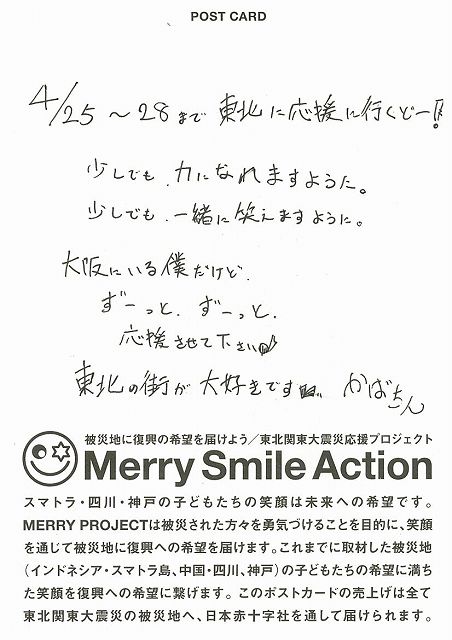 POST CARD
4/25 〜28まで 東北に応援に行くどー!!
少しでも、力になれますように。
少しでも、一緒に笑えますように。
大阪にいる僕だけど、
ずーっと、ずーっと、
応援させて下さい
東北の街が大好きです かばちん
被災地に復興の希望を届けよう/東北関東大震災応援プロジェクト
Merry Smile Action
スマトラ・四川・神戸の子どもたちの笑顔は未来への希望です。
MERRY PROJECTは被災された方々を勇気づけることを目的に、笑顔
を通じて被災地に復興への希望を届けます。これまでに取材した被災地
(インドネシア・スマトラ島、中国・四川、神戸)の子どもたちの希望に満ち
た笑顔を復興への希望に繋げます。このポストカードの売上げは全て
東北関東大震災の被災地へ、日本赤十字社を通して届けられます。